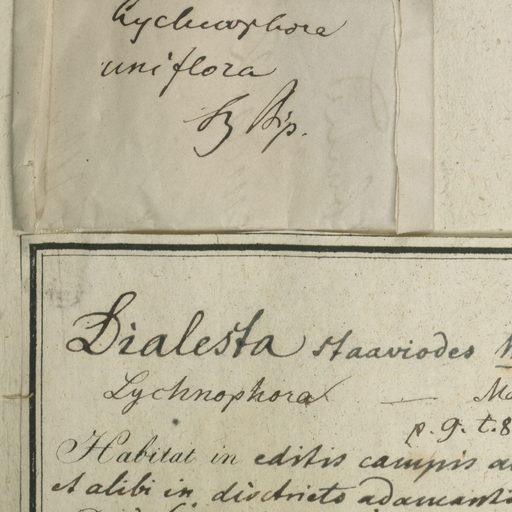 Lychnophora
uniflora
Sz Bip.
Dialesta staaviodes
Lychnophora — Ma
p. 9. t. 8
Habitat in editis campis
et alibi in districto adamanti